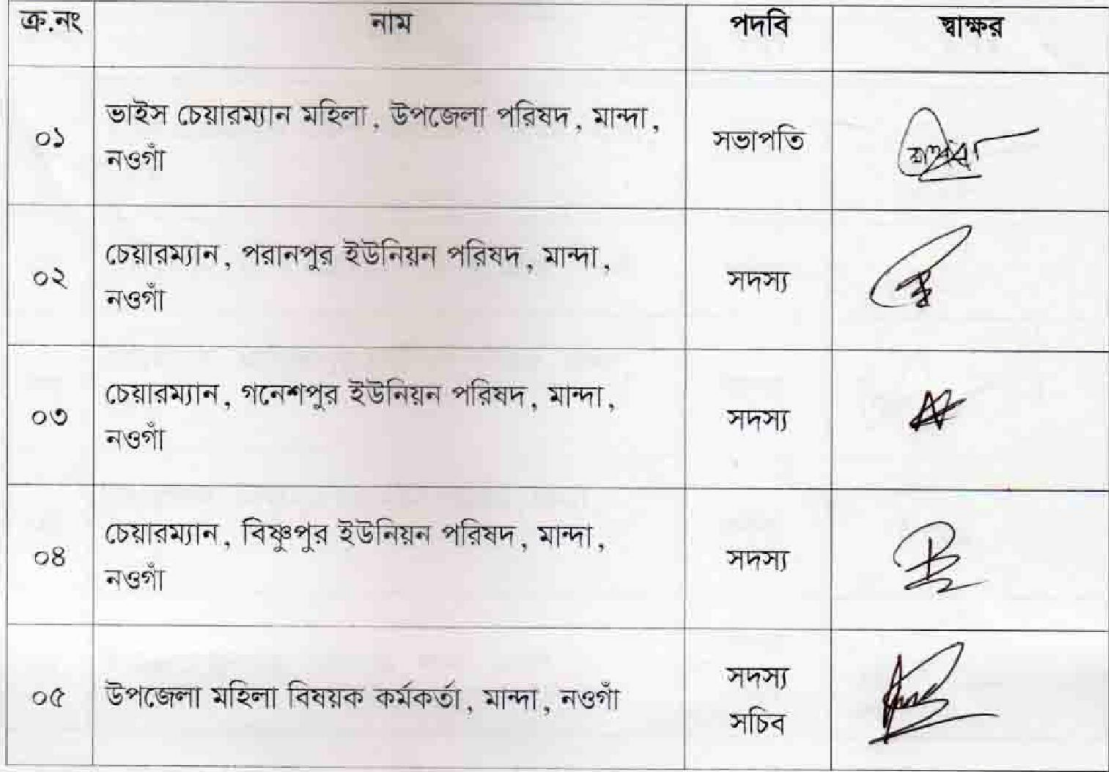 ক্র.নং নাম পদবি স্বাক্ষর
০১ ভাইস চেয়ারম্যান মহিলা, উপজেলা পরিষদ, মান্দা,
নওগাঁ সভাপতি
০২ চেয়ারম্যান, পরানপুর ইউনিয়ন পরিষদ, মান্দা,
নওগাঁ সদস্য
০৩ চেয়ারম্যান, গনেশপুর ইউনিয়ন পরিষদ, মান্দা,
নওগাঁ সদস্য
০৪ চেয়ারম্যান, বিষ্ণুপুর ইউনিয়ন পরিষদ, মান্দা,
নওগাঁ সদস্য
০৫ উপজেলা মহিলা বিষয়ক কর্মকর্তা, মান্দা, নওগাঁ সদস্য
সচিব